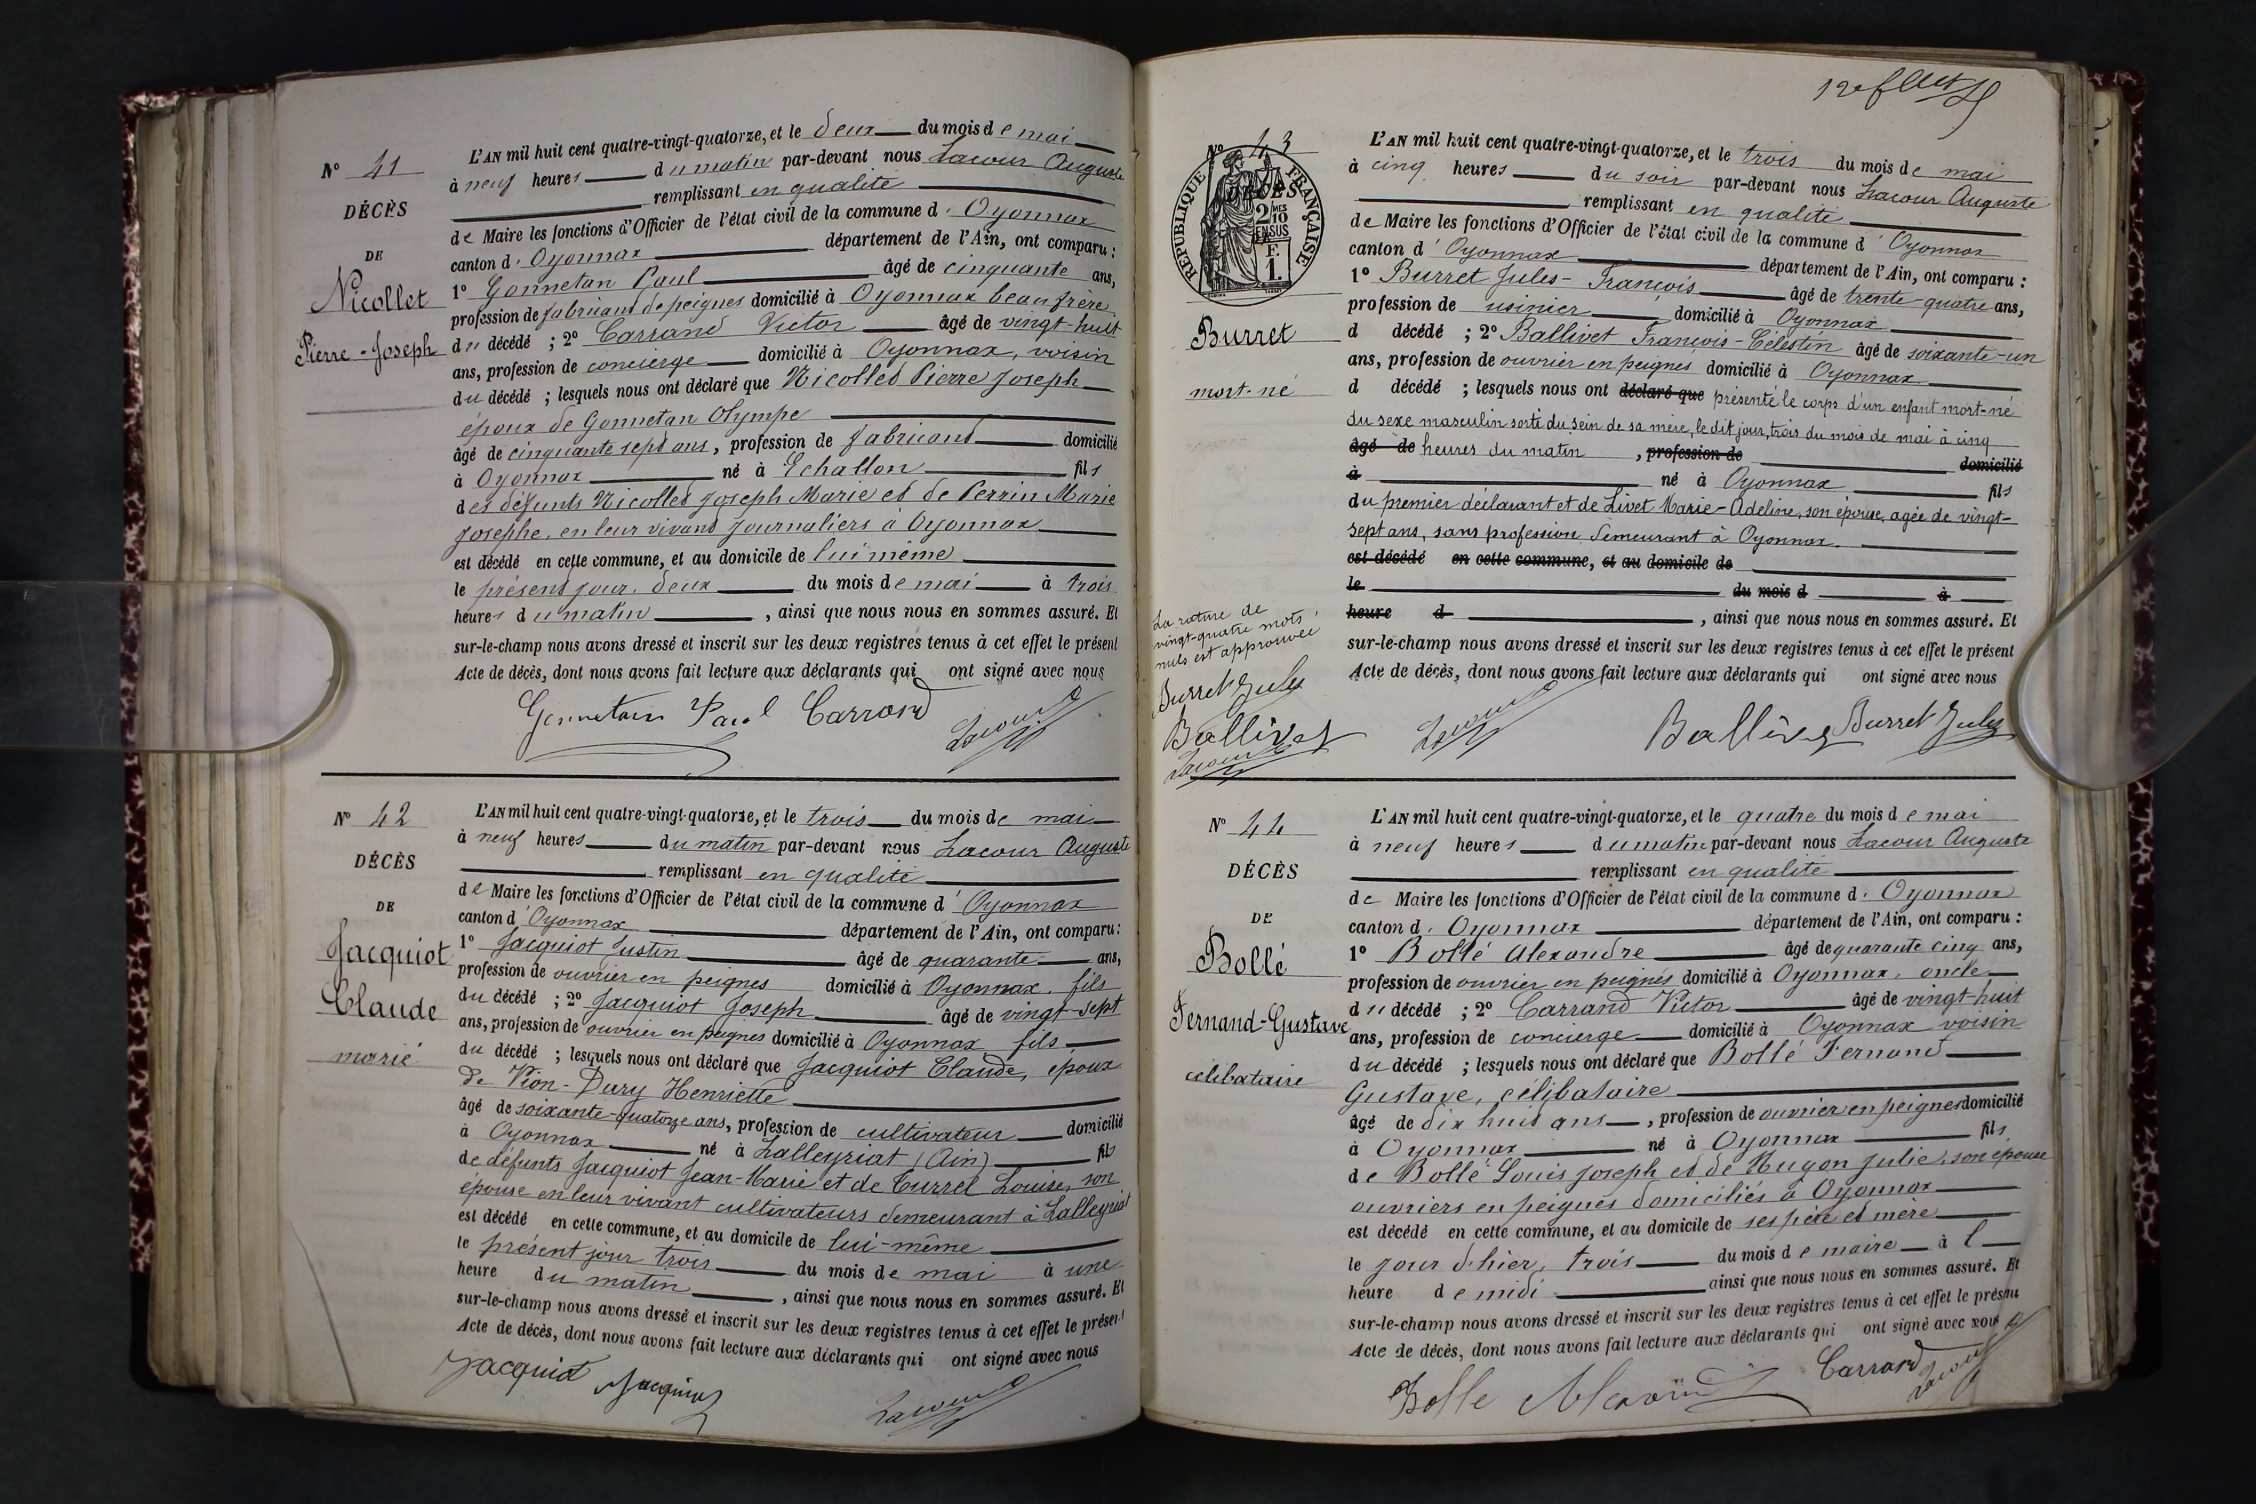 N° 41
DÉCÈS
DE
Nicollet
Pierre-Joseph
L'AN mil huit cent quatre-vingt-quatorze, et le deux du mois de mai
à neuf heures du matin par-devant nous Lacour Auguste
remplissant en qualité
de Maire les fonctions d'Officier de l'état civil de la commune d' Oyonnax
canton d' Oyonnax département de l'Ain, ont comparu :
1° Gonnetan Paul âgé de cinquante ans,
profession de fabricant de peignes domicilié à Oyonnax beau frère
du décédé ; 2° Carrand Victor âgé de vingt-huit
ans, profession de concierge domicilié à Oyonnax, voisin
du décédé ; lesquels nous ont déclaré que Nicollet Pierre Joseph
époux de Gonnetan Olympe
âgé de cinquante sept ans, profession de fabricant domicilié
à Oyonnax né à Echallon fils
des défunts Nicollet Joseph Marie et de Perrin Marie
Josephe, en leur vivant journaliers à Oyonnax
est décédé en cette commune, et au domicile de lui même
le présent jour, deux du mois de mai à trois
heures du matin, ainsi que nous nous en sommes assuré. Et
sur-le-champ nous avons dressé et inscrit sur les deux registres tenus à cet effet le présent
Acte de décès, dont nous avons fait lecture aux déclarants qui ont signé avec nous
Gonnetan Paul Carrand Lacour
N° 42
DÉCÈS
DE
Jacquiot
Claude
marié
L'AN mil huit cent quatre-vingt-quatorze, et le trois du mois de mai
à neuf heures du matin par-devant nous Lacour Auguste
remplissant en qualité
de Maire les fonctions d'Officier de l'état civil de la commune d' Oyonnax
canton d' Oyonnax département de l'Ain, ont comparu :
1° Jacquiot Justin âgé de quarante ans,
profession de ouvrier en peignes domicilié à Oyonnax, fils
du décédé ; 2° Jacquiot Joseph âgé de vingt-sept
ans, profession de ouvrier en peignes domicilié à Oyonnax fils
du décédé ; lesquels nous ont déclaré que Jacquiot Claude, époux
de Vion-Dury Henriette
âgé de soixante-quatorze ans, profession de cultivateur domicilié
à Oyonnax né à Lalleyriat (Ain) fils
de défunts Jacquiot Jean-Marie et de Curret Louise, son
épouse en leur vivant cultivateurs demeurant à Lalleyriat
est décédé en cette commune, et au domicile de lui-même
le présent jour trois du mois de mai à une
heure du matin, ainsi que nous nous en sommes assuré. Et
sur-le-champ nous avons dressé et inscrit sur les deux registres tenus à cet effet le présent
Acte de décès, dont nous avons fait lecture aux déclarants qui ont signé avec nous
Jacquiot Jacquiot Lacour
12e
N° 43
RÉPUBLIQUE FRANÇAISE
2/10 EN SUS
1 F.
Burret
mort-né
L'AN mil huit cent quatre-vingt-quatorze, et le trois du mois de mai
à cinq heures du soir par-devant nous Lacour Auguste
remplissant en qualité
de Maire les fonctions d'Officier de l'état civil de la commune d' Oyonnax
canton d' Oyonnax département de l'Ain, ont comparu :
1° Burret Jules-François âgé de trente-quatre ans,
profession de usinier domicilié à Oyonnax
d décédé ; 2° Ballivet François-Célestin âgé de soixante-un
ans, profession de ouvrier en peignes domicilié à Oyonnax
d décédé ; lesquels nous ont déclaré que présenté le corps d'un enfant mort-né
du sexe masculin sorti du sein de sa mère, le dit jour, trois du mois de mai à cinq
âgé de heures du matin, profession de domicilié
à né à Oyonnax fils
du premier déclarant et de Livet Marie-Adeline, son épouse, agée de vingt-
sept ans, sans profession demeurant à Oyonnax.
est décédé en cette commune, et au domicile de
le du mois d à
heure d, ainsi que nous nous en sommes assuré. Et
sur-le-champ nous avons dressé et inscrit sur les deux registres tenus à cet effet le présent
Acte de décès, dont nous avons fait lecture aux déclarants qui ont signé avec nous
La rature de
vingt-quatre mots
nuls est approuvée
Burret Jules
Ballivet
Lacour
Lacour Ballivet Burret Jules
N° 44
DÉCÈS
DE
Bollé
Fernand-Gustave
célibataire
L'AN mil huit cent quatre-vingt-quatorze, et le quatre du mois de mai
à neuf heures du matin par-devant nous Lacour Auguste
remplissant en qualité
de Maire les fonctions d'Officier de l'état civil de la commune d' Oyonnax
canton d' Oyonnax département de l'Ain, ont comparu :
1° Bollé Alexandre âgé de quarante cinq ans,
profession de ouvrier en peignes domicilié à Oyonnax, oncle
du décédé ; 2° Carrand Victor âgé de vingt-huit
ans, profession de concierge domicilié à Oyonnax voisin
du décédé ; lesquels nous ont déclaré que Bollé Fernand
Gustave, célibataire
âgé de dix huit ans, profession de ouvrier en peignes domicilié
à Oyonnax né à Oyonnax fils
de Bollé Louis Joseph et de Nugon Julie, son épouse
ouvriers en peignes domiciliés à Oyonnax
est décédé en cette commune, et au domicile de ses père et mère
le jour d'hier, trois du mois de maire à l
heure de midi ainsi que nous nous en sommes assuré. Et
sur-le-champ nous avons dressé et inscrit sur les deux registres tenus à cet effet le présent
Acte de décès, dont nous avons fait lecture aux déclarants qui ont signé avec nous
Bolle Carrand Lacour